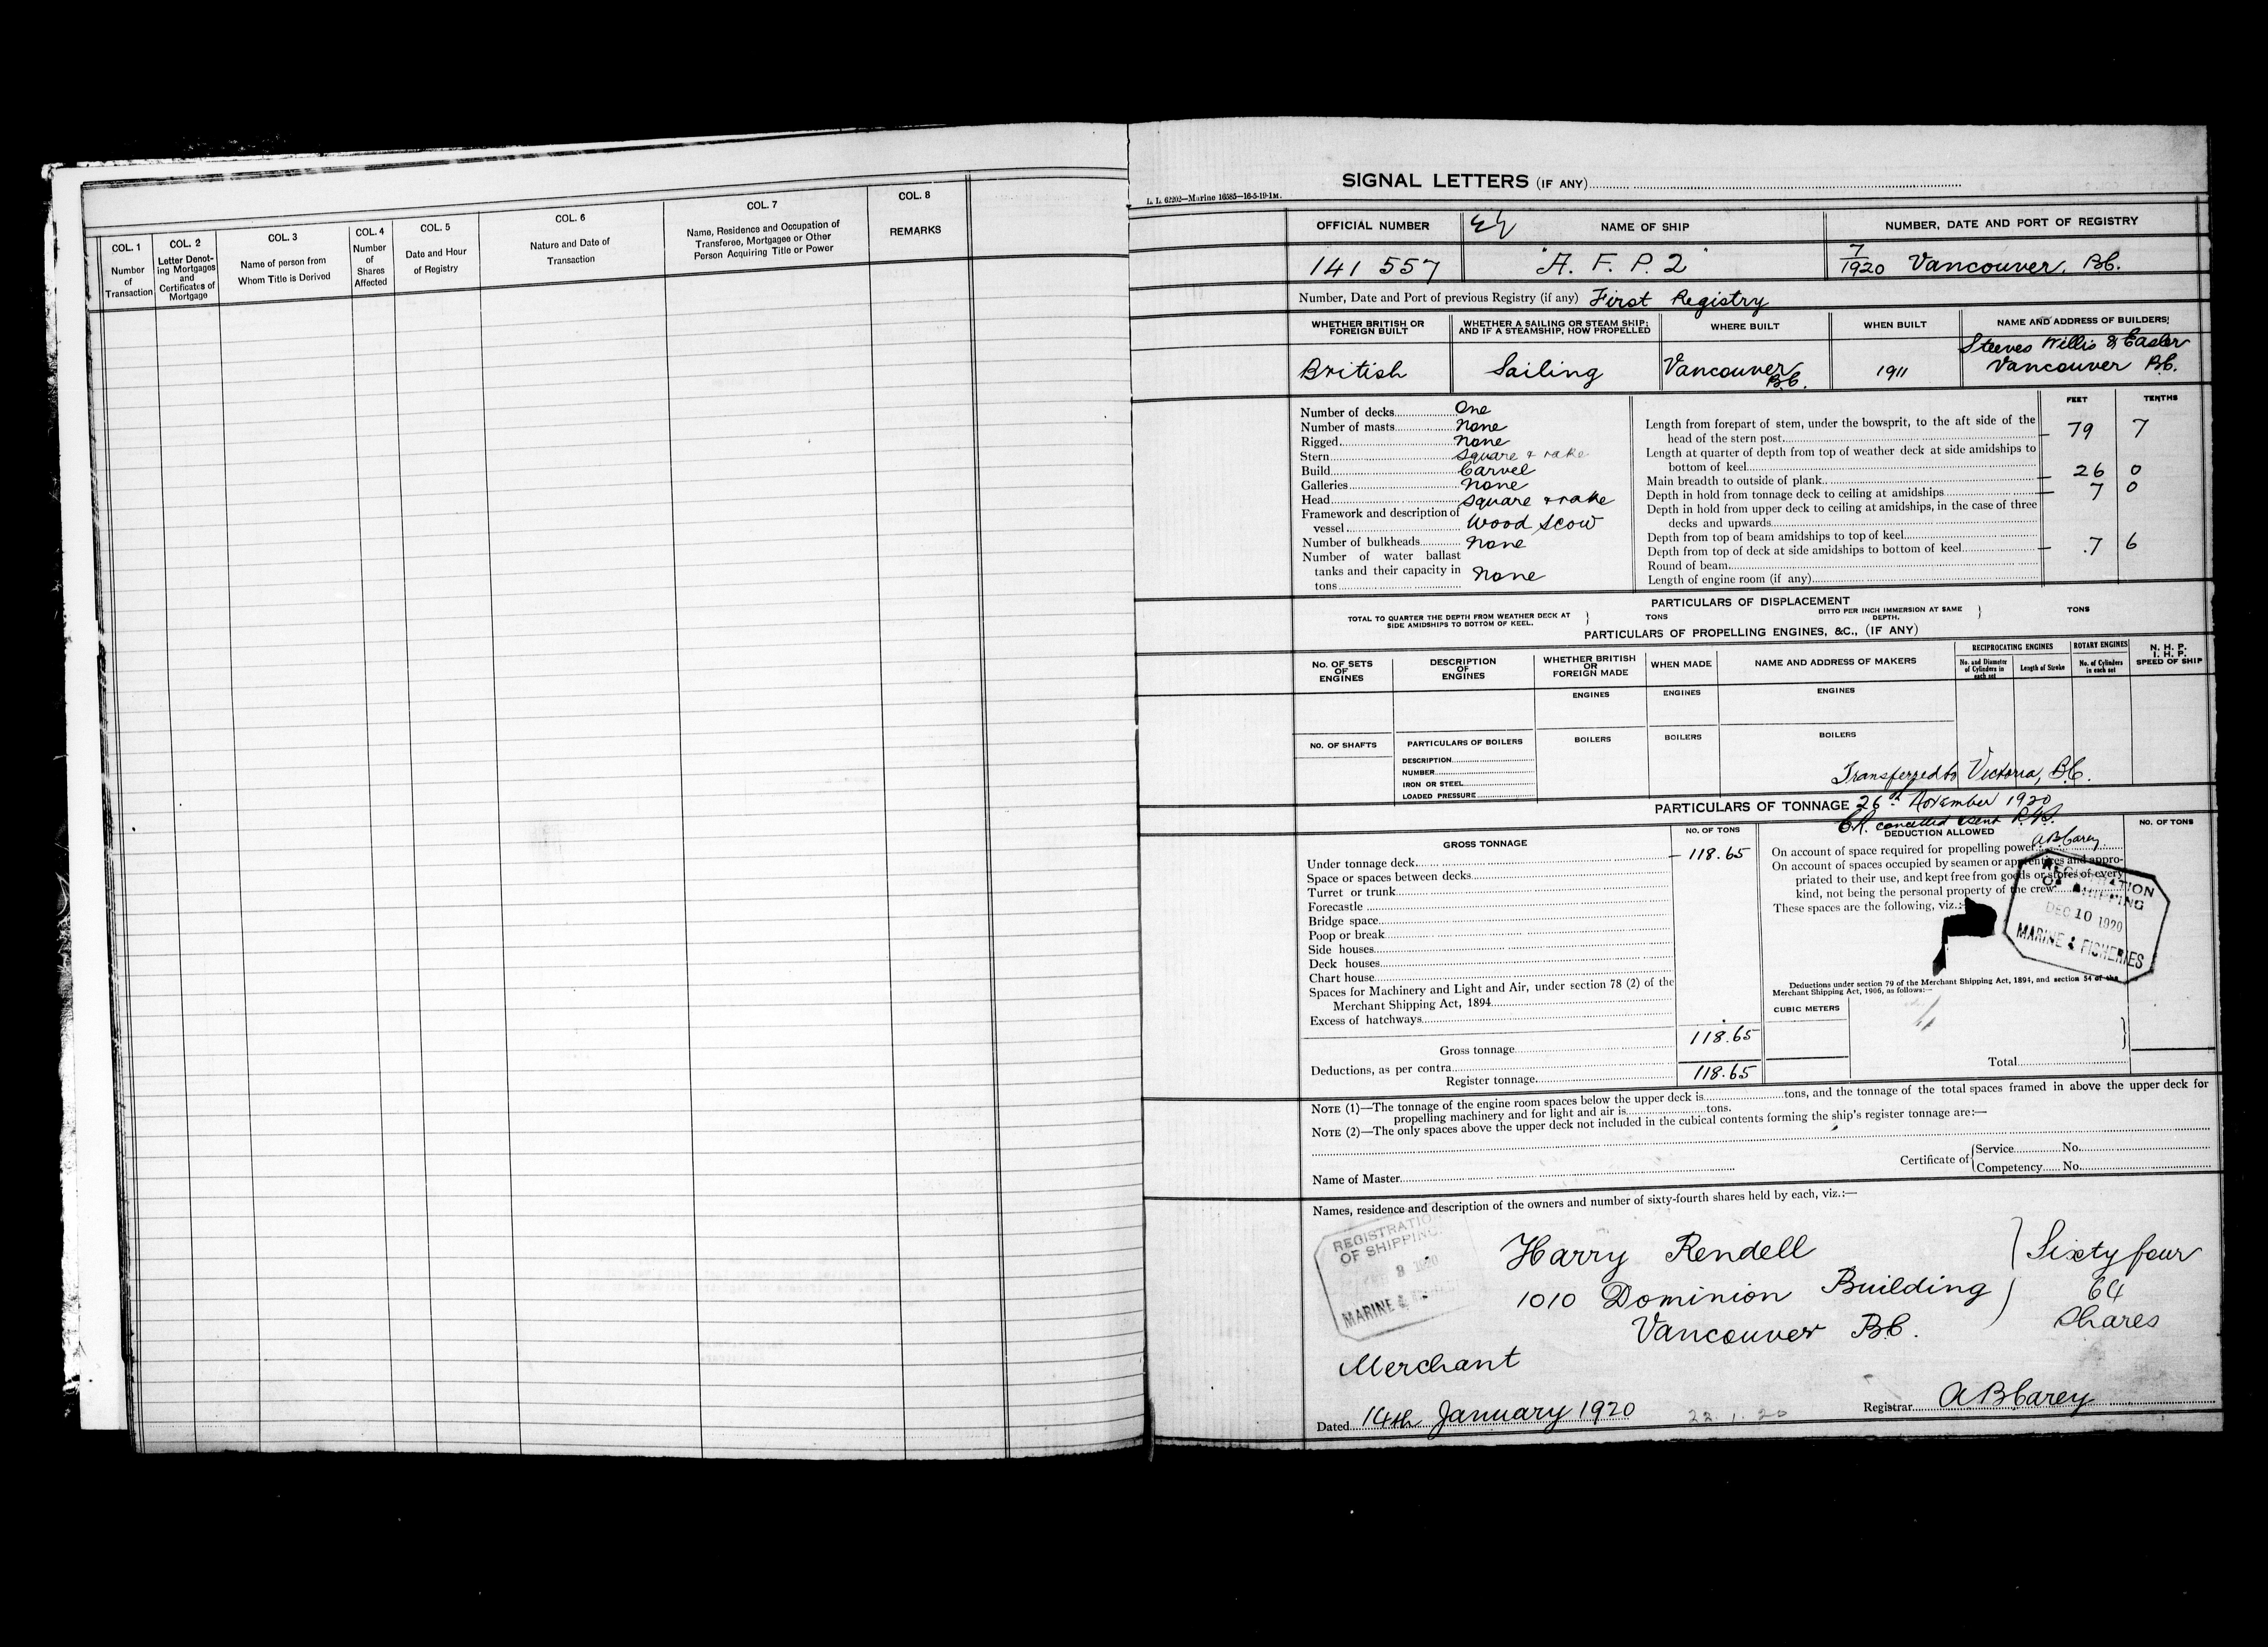 COL. 1
Number
of
Transaction
COL. 2
Letter Denot-
ing Mortgages
and
Certificates of
Mortgage
COL. 3
Name of person from
Whom Title is Derived
COL. 4
Number
of
Shares
Affected
COL. 5
Date and Hour
of Registry
COL. 6
Nature and Date of
Transaction
COL. 7
Name, Residence and Occupation of
Transferee, Mortgagee or Other
Person Acquiring Title or Power
COL. 8
REMARKS
SIGNAL LETTERS (IF ANY)
L. L. 62202—Marine 16585—16-5-19-1M.
OFFICIAL NUMBER
NAME OF SHIP
NUMBER, DATE AND PORT OF REGISTRY
141 557
"A. F. P. 2"
7/1920 Vancouver, B.C.
Number, Date and Port of previous Registry (if any) First Registry
WHETHER BRITISH OR
FOREIGN BUILT
WHETHER A SAILING OR STEAM SHIP;
AND IF A STEAMSHIP, HOW PROPELLED
WHERE BUILT
WHEN BUILT
NAME AND ADDRESS OF BUILDERS
British
Sailing
Vancouver
B.C.
1911
Steeves Willis & Easler
Vancouver B.C.
Number of decks One
Number of masts None
Rigged None
Stern Square & rake
Build Carvel
Galleries None
Head Square & rake
Framework and description of
vessel Wood Scow
Number of bulkheads None
Number of water ballast
tanks and their capacity in
tons None
FEET TENTHS
Length from forepart of stem, under the bowsprit, to the aft side of the
head of the stern post 79 7
Length at quarter of depth from top of weather deck at side amidships to
bottom of keel
Main breadth to outside of plank 26 0
Depth in hold from tonnage deck to ceiling at amidships 7 0
Depth in hold from upper deck to ceiling at amidships, in the case of three
decks and upwards
Depth from top of beam amidships to top of keel
Depth from top of deck at side amidships to bottom of keel 7 6
Round of beam
Length of engine room (if any)
PARTICULARS OF DISPLACEMENT
TOTAL TO QUARTER THE DEPTH FROM WEATHER DECK AT
SIDE AMIDSHIPS TO BOTTOM OF KEEL.
TONS
DITTO PER INCH IMMERSION AT SAME
DEPTH.
TONS
PARTICULARS OF PROPELLING ENGINES, &C., (IF ANY)
NO. OF SETS
OF
ENGINES
DESCRIPTION
OF
ENGINES
WHETHER BRITISH
OR
FOREIGN MADE
WHEN MADE
NAME AND ADDRESS OF MAKERS
RECIPROCATING ENGINES
No. and Diameter
of Cylinders in
each set
Length of Stroke
ROTARY ENGINES
No. of Cylinders
in each set
N. H. P.
I. H. P.
SPEED OF SHIP
ENGINES
ENGINES
ENGINES
NO. OF SHAFTS
PARTICULARS OF BOILERS
BOILERS
BOILERS
BOILERS
DESCRIPTION
NUMBER
IRON OR STEEL
LOADED PRESSURE
Transferred to Victoria, B.C.
PARTICULARS OF TONNAGE 26th November 1920
C.R. cancelled & sent R.G.S.
A B Carey
GROSS TONNAGE
NO. OF TONS
DEDUCTION ALLOWED
NO. OF TONS
Under tonnage deck 118.65
Space or spaces between decks
Turret or trunk
Forecastle
Bridge space
Poop or break
Side houses
Deck houses
Chart house
Spaces for Machinery and Light and Air, under section 78 (2) of the
Merchant Shipping Act, 1894
Excess of hatchways
Gross tonnage 118.65
Deductions, as per contra
Register tonnage 118.65
On account of space required for propelling power
On account of spaces occupied by seamen or apprentices and appro-
priated to their use, and kept free from goods or stores of every
kind, not being the personal property of the crew
These spaces are the following, viz.:—
REGISTRATION
OF SHIPPING
DEC 10 1920
MARINE & FISHERIES
Deductions under section 79 of the Merchant Shipping Act, 1894, and section 54 of the
Merchant Shipping Act, 1906, as follows:—
CUBIC METERS
Total
NOTE (1)—The tonnage of the engine room spaces below the upper deck is tons, and the tonnage of the total spaces framed in above the upper deck for
propelling machinery and for light and air is tons.
NOTE (2)—The only spaces above the upper deck not included in the cubical contents forming the ship's register tonnage are:—
Name of Master
Certificate of
Service No.
Competency No.
Names, residence and description of the owners and number of sixty-fourth shares held by each, viz.:—
REGISTRATION
OF SHIPPING.
1920
MARINE &
Harry Rendell
1010 Dominion Building
Vancouver B.C.
Merchant
Sixty four
64
Shares
Dated 14th January 1920
22 1. 20
Registrar A B Carey